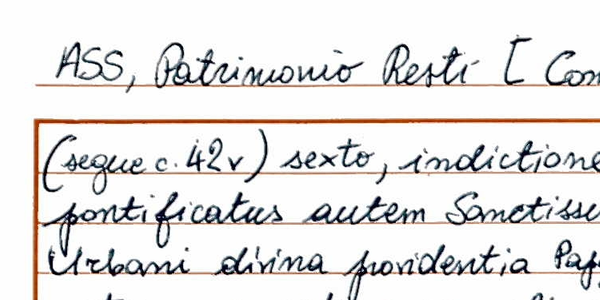 ASS, Patrimonio Resti [ Con
(segue c. 42v) sexto, indictione
pontificatus autem Sanctissi
Urbani divina providentia Pap